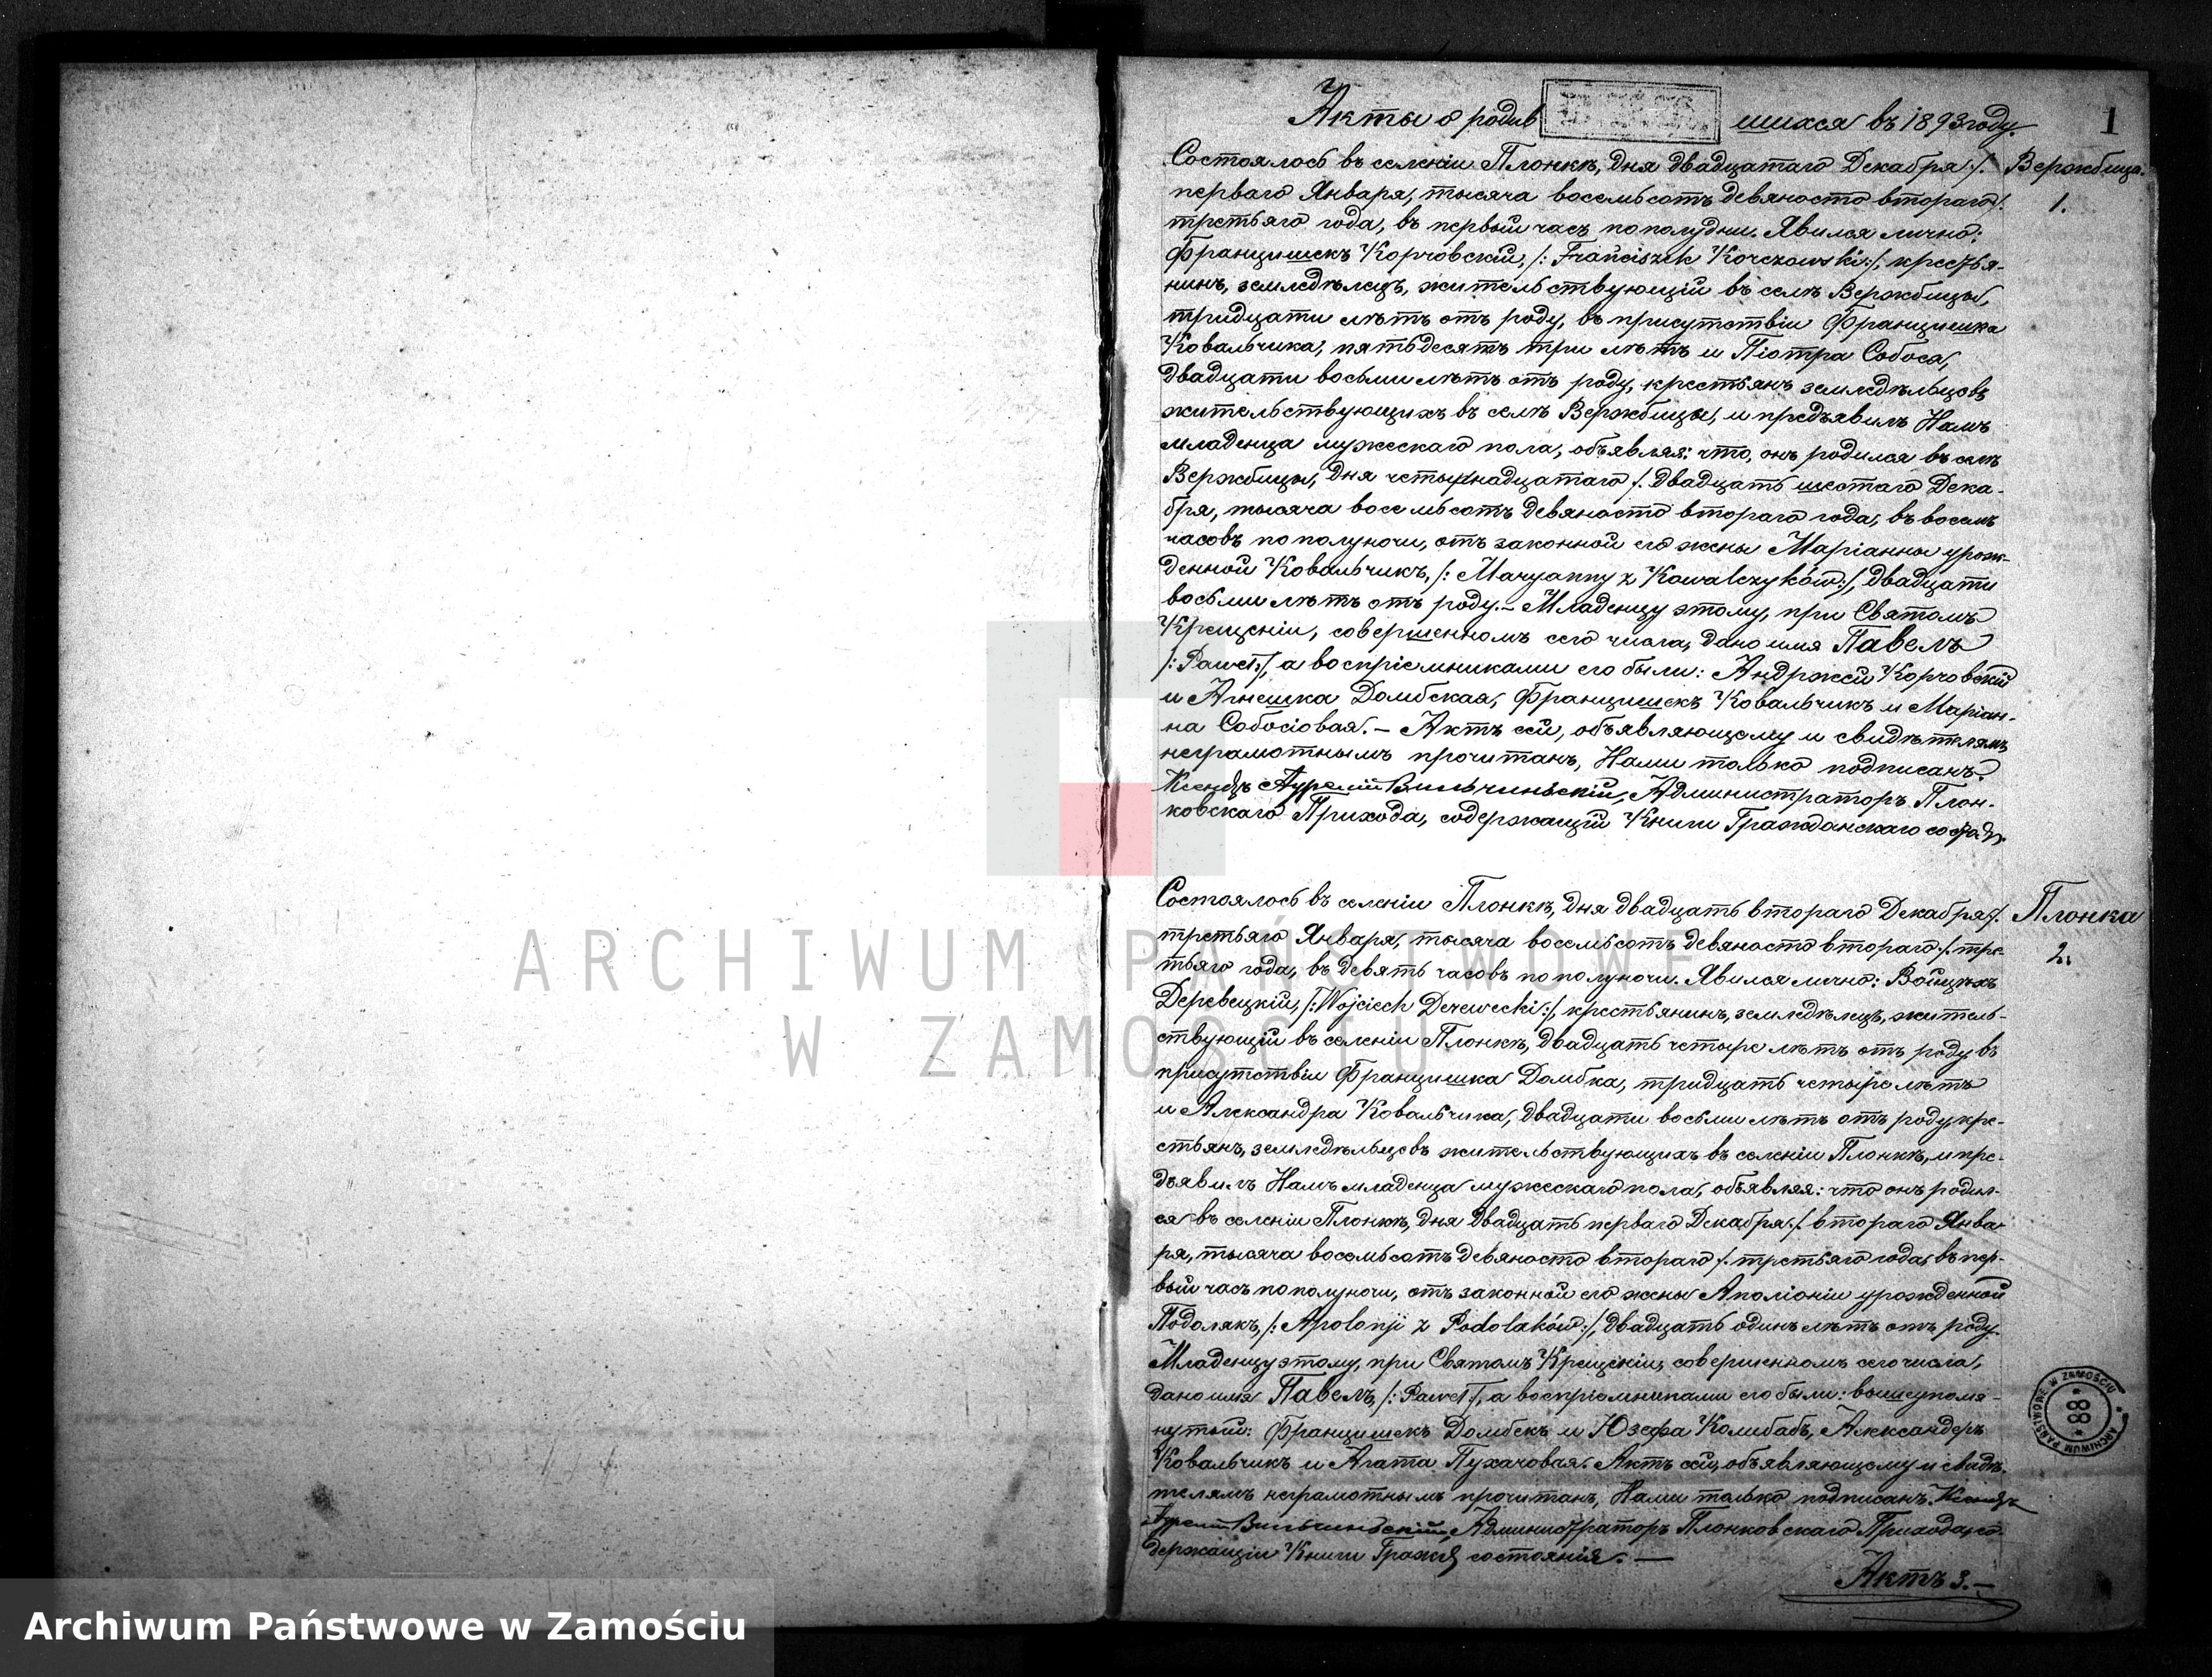 Акты о родив шихся въ 1893 году.
1
Состоялось въ селеніи Плонкѣ, дня двадцатаго Декабря /. Вержбица.
перваго Января, тысяча восемьсотъ девяносто втораго /. 1.
третьяго года, въ первый часъ по полудни. Явился лично:
Францишекъ Корчовскій, /: Franciszek Korczowski :/, крестья-
нинъ, земледѣлецъ, жительствующій въ селѣ Вержбицы,
тридцати лѣтъ отъ роду, въ присутствіи Францишка
Ковальчика, пятьдесятъ три лѣтъ и Піотра Собоса,
двадцати восьми лѣтъ отъ роду, крестьянъ земледѣльцовъ
жительствующихъ въ селѣ Вержбицы, и предъявилъ Намъ
младенца мужескаго пола, объявляя: что, онъ родился въ селѣ
Вержбицы, дня четырнадцатаго /. двадцать шестаго Дека-
бря, тысяча восемьсотъ девяносто втораго года, въ восемь
часовъ по полуночи, отъ законной его жены Маріанны урож-
денной Ковальчикъ, /: Maryanny z Kowalczyków :/, двадцати
восьми лѣтъ отъ роду. – Младенцу этому, при Святомъ
Крещеніи, совершенномъ сего числа, дано имя Павелъ
/: Paweł :/, а воспріемниками его были: Андржей Корчовскій
и Агнешка Домбская, Францишекъ Ковальчикъ и Маріан-
на Собосіовая. – Актъ сей, объявляющему и свидѣтелямъ
неграмотнымъ прочитанъ, Нами только подписанъ.
Ксендзъ Аурелій Вильчиньскій, Администраторъ Плон-
ковскаго Прихода, содержащій Книги Гражданскаго
Состоялось въ селеніи Плонкѣ, дня двадцать втораго Декабря /. Плонка
третьяго Января, тысяча восемьсотъ девяносто втораго /. тре- 2.
тьяго года, въ девять часовъ по полуночи. Явился лично: Войцѣхъ
Деревецкій, /: Wojciech Derewecki :/, крестьянинъ, земледѣлецъ, житель-
ствующій въ селеніи Плонкѣ, двадцать четыре лѣтъ отъ роду въ
присутствіи Францишка Домбка, тридцать четыре лѣтъ
и Александра Ковальчика, двадцати восьми лѣтъ отъ роду, кре-
стьянъ, земледѣльцовъ жительствующихъ въ селеніи Плонкѣ, и пре-
дъявилъ Намъ младенца мужескаго пола, объявляя: что онъ родил-
ся въ селеніи Плонкѣ, дня двадцать перваго Декабря /. втораго Янва-
ря, тысяча восемьсотъ девяносто втораго /. третьяго года, въ пер-
вый часъ по полуночи, отъ законной его жены Аполіоніи урожденной
Подолякъ, /: Apolonji z Podolaków :/, двадцать одинъ лѣтъ отъ роду.
Младенцу этому, при Святомъ Крещеніи, совершенномъ сего числа,
дано имя Павелъ, /: Paweł :/, а воспріемниками его были: вышеупомя-
нутый: Францишекъ Домбекъ и Юзефа Колибабъ, Александеръ
Ковальчикъ и Агата Пухачовая. Актъ сей, объявляющему и свидѣ-
телямъ неграмотнымъ прочитанъ, Нами только подписанъ. Ксендзъ
Аурелій Вильчиньскій, Администраторъ Плонковскаго Прихода, со-
держащій Книги Гражд состоянія. —
Актъ 3. —
ARCHIWUM PAŃSTWOWE
W ZAMOŚCIU
ARCHIWUM PAŃSTWOWE W ZAMOŚCIU
Archiwum Państwowe w Zamościu